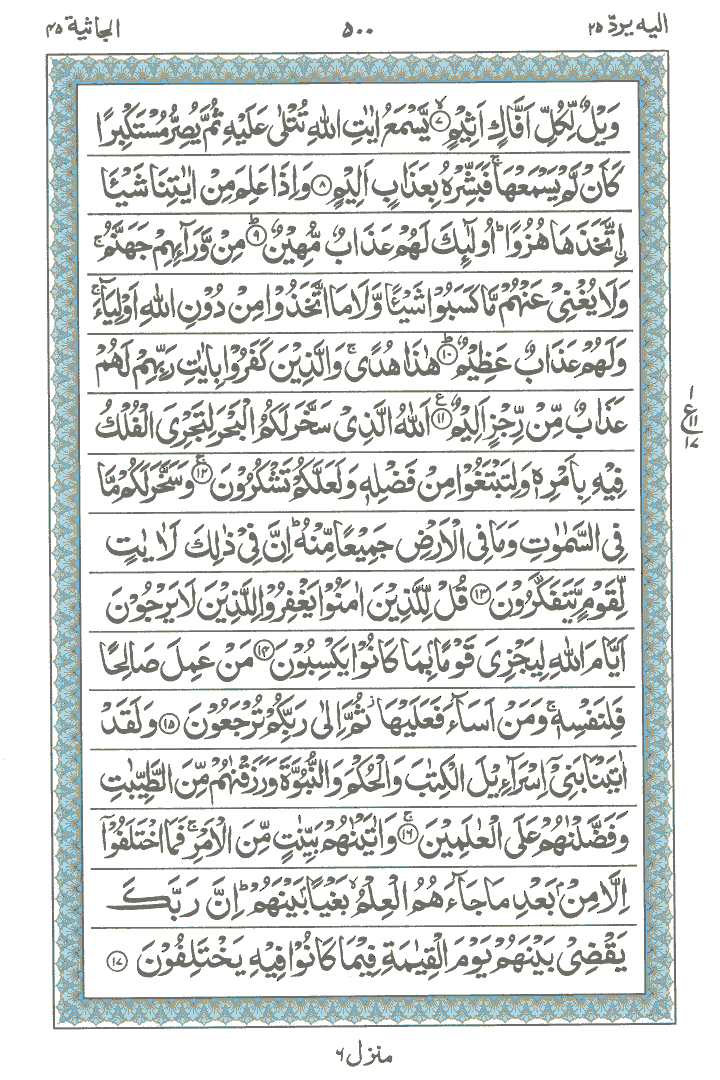 اليه يردّ ٢٥
٥٠٠
الجاثية ٤٥
وَيْلٌ لِّكُلِّ اَفَّاكٍ اَثِيْمٍ ۙ﴿۷﴾ يَّسْمَعُ اٰيٰتِ اللّٰهِ تُتْلٰى عَلَيْهِ ثُمَّ يُصِرُّ مُسْتَكْبِرًا
كَاَنْ لَّمْ يَسْمَعْهَا ۚ فَبَشِّرْهُ بِعَذَابٍ اَلِيْمٍ ﴿۸﴾ وَاِذَا عَلِمَ مِنْ اٰيٰتِنَا شَيْئًا
اۨتَّخَذَهَا هُزُوًا ؕ اُولٰٓئِكَ لَهُمْ عَذَابٌ مُّهِيْنٌ ؕ﴿۹﴾ مِنْ وَّرَآئِهِمْ جَهَنَّمُ ۚ
وَلَا يُغْنِيْ عَنْهُمْ مَّا كَسَبُوْا شَيْئًا وَّلَا مَا اتَّخَذُوْا مِنْ دُوْنِ اللّٰهِ اَوْلِيَآءَ ۚ
وَلَهُمْ عَذَابٌ عَظِيْمٌ ؕ﴿۱۰﴾ هٰذَا هُدًى ۚ وَالَّذِيْنَ كَفَرُوْا بِاٰيٰتِ رَبِّهِمْ لَهُمْ
عَذَابٌ مِّنْ رِّجْزٍ اَلِيْمٌ ﴿۱۱﴾ ع اَللّٰهُ الَّذِيْ سَخَّرَ لَكُمُ الْبَحْرَ لِتَجْرِيَ الْفُلْكُ
١
ع
١١
١٧
فِيْهِ بِاَمْرِهٖ وَلِتَبْتَغُوْا مِنْ فَضْلِهٖ وَلَعَلَّكُمْ تَشْكُرُوْنَ ۚ﴿۱۲﴾ وَسَخَّرَ لَكُمْ مَّا
فِي السَّمٰوٰتِ وَمَا فِي الْاَرْضِ جَمِيْعًا مِّنْهُ ؕ اِنَّ فِيْ ذٰلِكَ لَاٰيٰتٍ
لِّقَوْمٍ يَّتَفَكَّرُوْنَ ﴿۱۳﴾ قُلْ لِّلَّذِيْنَ اٰمَنُوْا يَغْفِرُوْا لِلَّذِيْنَ لَا يَرْجُوْنَ
اَيَّامَ اللّٰهِ لِيَجْزِيَ قَوْمًا بِمَا كَانُوْا يَكْسِبُوْنَ ﴿۱۴﴾ مَنْ عَمِلَ صَالِحًا
فَلِنَفْسِهٖ ۚ وَمَنْ اَسَآءَ فَعَلَيْهَا ؗ ثُمَّ اِلٰى رَبِّكُمْ تُرْجَعُوْنَ ﴿۱۵﴾ وَلَقَدْ
اٰتَيْنَا بَنِيْٓ اِسْرَآءِيْلَ الْكِتٰبَ وَالْحُكْمَ وَالنُّبُوَّةَ وَرَزَقْنٰهُمْ مِّنَ الطَّيِّبٰتِ
وَفَضَّلْنٰهُمْ عَلَى الْعٰلَمِيْنَ ۚ﴿۱۶﴾ وَاٰتَيْنٰهُمْ بَيِّنٰتٍ مِّنَ الْاَمْرِ ۚ فَمَا اخْتَلَفُوْٓا
اِلَّا مِنْۢ بَعْدِ مَا جَآءَهُمُ الْعِلْمُ ۙ بَغْيًۢا بَيْنَهُمْ ؕ اِنَّ رَبَّكَ
يَقْضِيْ بَيْنَهُمْ يَوْمَ الْقِيٰمَةِ فِيْمَا كَانُوْا فِيْهِ يَخْتَلِفُوْنَ ﴿۱۷﴾
منزل ٦